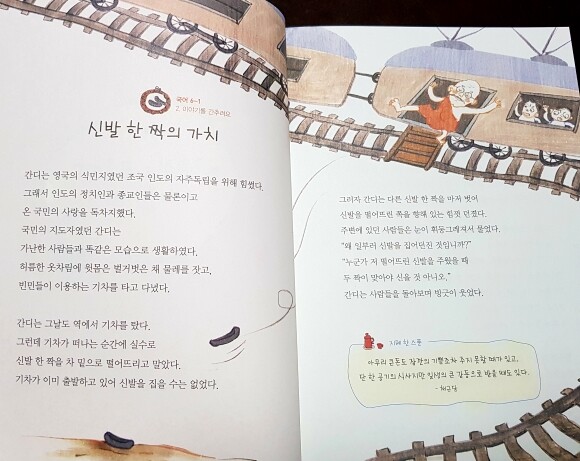 국어 6-1
2. 이야기를 간추려요
신발 한 짝의 가치
간디는 영국의 식민지였던 조국 인도의 자주독립을 위해 힘썼다.
그래서 인도의 정치인과 종교인들은 물론이고
온 국민의 사랑을 독차지했다.
국민의 지도자였던 간디는
가난한 사람들과 똑같은 모습으로 생활하였다.
허름한 옷차림에 윗몸은 벌거벗은 채 물레를 잣고,
빈민들이 이용하는 기차를 타고 다녔다.
간디는 그날도 역에서 기차를 탔다.
그런데 기차가 떠나는 순간에 실수로
신발 한 짝을 차 밑으로 떨어뜨리고 말았다.
기차가 이미 출발하고 있어 신발을 집을 수는 없었다.
그러자 간디는 다른 신발 한 짝을 마저 벗어
신발을 떨어뜨린 쪽을 향해 있는 힘껏 던졌다.
주변에 있던 사람들은 눈이 휘둥그레져서 물었다.
"왜 일부러 신발을 집어던진 것입니까?"
"누군가 저 떨어뜨린 신발을 주웠을 때
두 짝이 맞아야 신을 것 아니오."
간디는 사람들을 돌아보며 빙긋이 웃었다.
지혜 한 스푼
아무리 큰돈도 잠깐의 기쁨조차 주지 못할 때가 있고,
단 한 공기의 식사지만 일생의 큰 감동으로 받을 때도 있다.
- 채근담